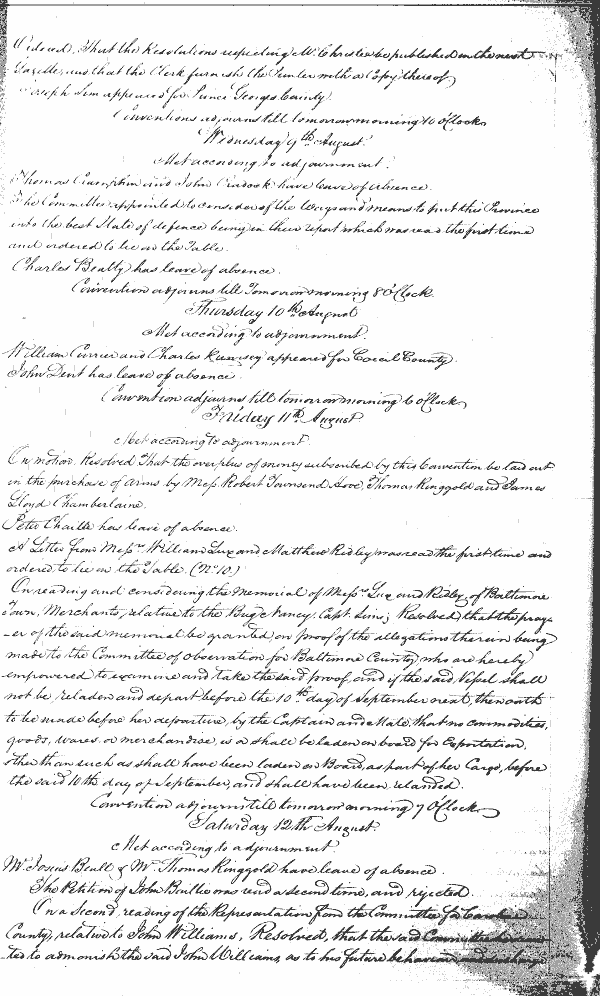 Resolved, That the Resolutions respecting Mr Christie be published in the next
Gazette, and that the Clerk furnish the Printer with a Copy thereof
Joseph Sim appeared for Prince Georges County.
Convention adjourns till tomorrow morning 10 oClock
Wednesday 9th August.
Met according to adjournment.
Thomas Cramphin and John Cradock have leave of absence.
The Committee appointed to consider of the ways and means to put this Province
into the best State of defence bring in their report which was read the first time
and ordered to lie on the Table.
Charles Beatty has leave of absence.
Convention adjourns till Tomorrow morning 8 oClock.
Thursday 10th August
Met according to adjournment.
William Currer and Charles Rumsey appeared for Coecil County.
John Dent has leave of absence.
Convention adjourns till tomorrow morning 6 oClock
Friday 11th August.
Met according to adjournment.
On motion, Resolved That the overplus of money subscribed by this Convention be laid out
in the purchase of arms by Mess Robert Townsend Hooe, Thomas Ringgold and James
Lloyd Chamberlaine.
Peter Chaille has leave of absence.
A Letter from Messrs William Lux and Matthew Ridley, was read the first time and
ordered to lie on the Table. (No 10.)
On reading and considering the Memorial of Messrs Lux and Ridley, of Baltimore
Town, Merchants, relative to the Brig Nancy, Capt. Sims; Resolved, that the pray-
-er of the said memorial be granted, on proof of the allegations therein being
made to the Committee of Observation for Baltimore County, who are hereby
empowered to examine and take the said proof, and if the said Vessel shall
not be reladen and depart before the 10th day of September next, then oath
to be made before her departure, by the Captain and Mate, that no commodities,
goods, wares, or merchandise, is or shall be laden on board for Exportation,
other than such as shall have been laden on Board, as part of her Cargo, before
the said 10th day of September, and shall have been relanded.
Convention adjourns till tomorrow morning 7 OClock
Saturday 12th August.
Met according to adjournment
Mr. Josias Beall & Mr Thomas Ringgold have leave of absence.
The Petition of John Baillie was read a second time, and rejected.
On a Second reading of the Representation from the Committee for Caroline
County, relative to John Williams, Resolved, that the said Committee be
-ted to admonish the said John Williams, as to his future behaviour